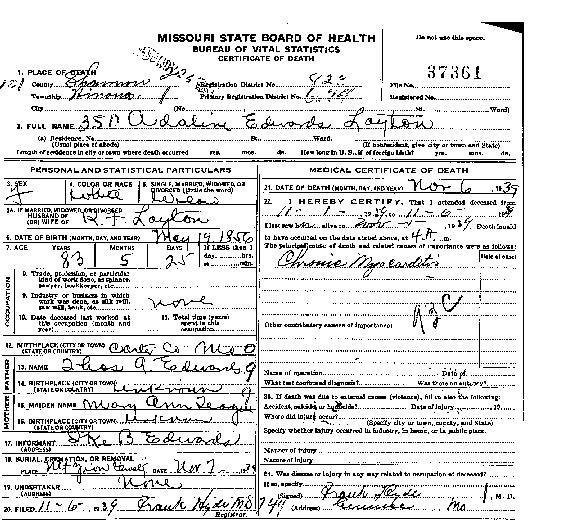 MISSOURI STATE BOARD OF HEALTH
BUREAU OF VITAL STATISTICS
CERTIFICATE OF DEATH
Do not use this space.
37361
1. PLACE OF DEATH
County Shannon Registration District No. File No.
Township Winona Primary Registration District No. Registered No.
City (No. St. Ward)
2. FULL NAME Adaline Edwards Layton
(a) Residence, No. St. Ward.
(Usual place of abode) (If nonresident, give city or town and State)
Length of residence in city or town where death occurred yrs. mos. ds. How long in U.S., if of foreign birth? yrs. mos. ds.
PERSONAL AND STATISTICAL PARTICULARS
3. SEX F
4. COLOR OR RACE White
5. SINGLE, MARRIED, WIDOWED, OR DIVORCED (write the word)
5A. IF MARRIED, WIDOWED, OR DIVORCED
HUSBAND OF
(OR) WIFE OF R. F. Layton
6. DATE OF BIRTH (MONTH, DAY, AND YEAR) May 19 1856
7. AGE YEARS MONTHS DAYS If LESS than 1 day, hrs. or min.
83 5 25
OCCUPATION
8. Trade, profession, or particular kind of work done, as spinner, sawyer, bookkeeper, etc.
9. Industry or business in which work was done, as silk mill, saw mill, bank, etc. none
10. Date deceased last worked at this occupation (month and year)
11. Total time (years) spent in this occupation
12. BIRTHPLACE (CITY OR TOWN) Carter Co Mo
(STATE OR COUNTRY)
FATHER
13. NAME Thos A Edwards
14. BIRTHPLACE (CITY OR TOWN) Unknown
(STATE OR COUNTRY)
MOTHER
15. MAIDEN NAME Mary Ann
16. BIRTHPLACE (CITY OR TOWN)
(STATE OR COUNTRY)
17. INFORMANT Ike B Edwards
(ADDRESS)
18. BURIAL, CREMATION, OR REMOVAL
PLACE Mt Zion DATE Nov 7 1939
19. UNDERTAKER None
(ADDRESS)
20. FILED 11-6-39 Frank Hyde MD
Registrar.
MEDICAL CERTIFICATE OF DEATH
21. DATE OF DEATH (MONTH, DAY, AND YEAR) Nov 6, 1939
22. I HEREBY CERTIFY, That I attended deceased from
11-1-1939, to 11-6-1939
I last saw alive on 1939 Death is said
to have occurred on the date stated above, at 4 A. m.
The principal cause of death and related causes of importance were as follows:
Date of onset
Chronic Myocarditis
Other contributory causes of importance:
Name of operation Date of
What test confirmed diagnosis? Was there an autopsy?
23. If death was due to external causes (violence), fill in also the following:
Accident, suicide or homicide? Date of injury 19
Where did injury occur?
(Specify city or town, county, and State)
Specify whether injury occurred in industry, in home, or in public place.
Manner of injury
Nature of injury
24. Was disease or injury in any way related to occupation of deceased?
If so, specify
(Signed) Frank Hyde, M.D.
(Address) Mo